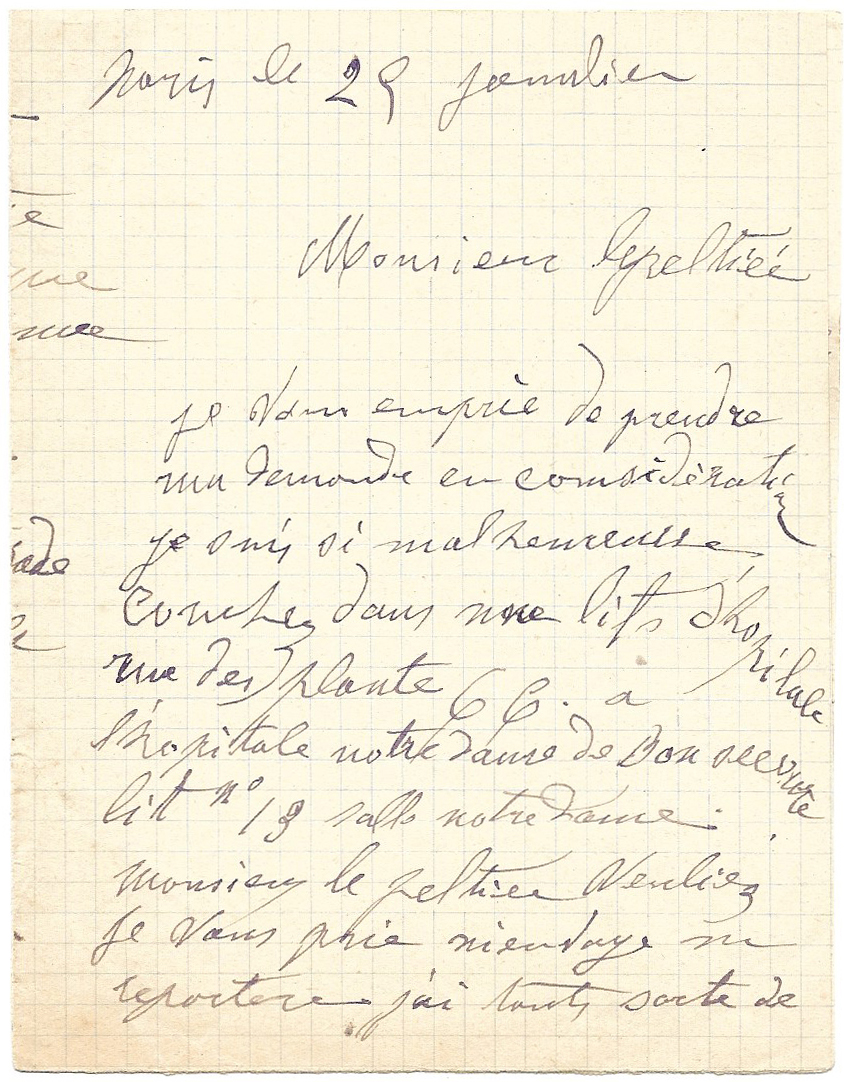 Paris le 25 janvlier
Monsieur lepeltiéé
je vous emprie de prendre
ma demande en considération
je suis si malheureusse
couche dans une lits d'hopitale
rue des plante 66. a
l'hopitale notre dame de Bon secourte
lit n° 13 salle notre dame.
monsieur le peltiee Veuliez
je vous prie
j'ai touts sorte de